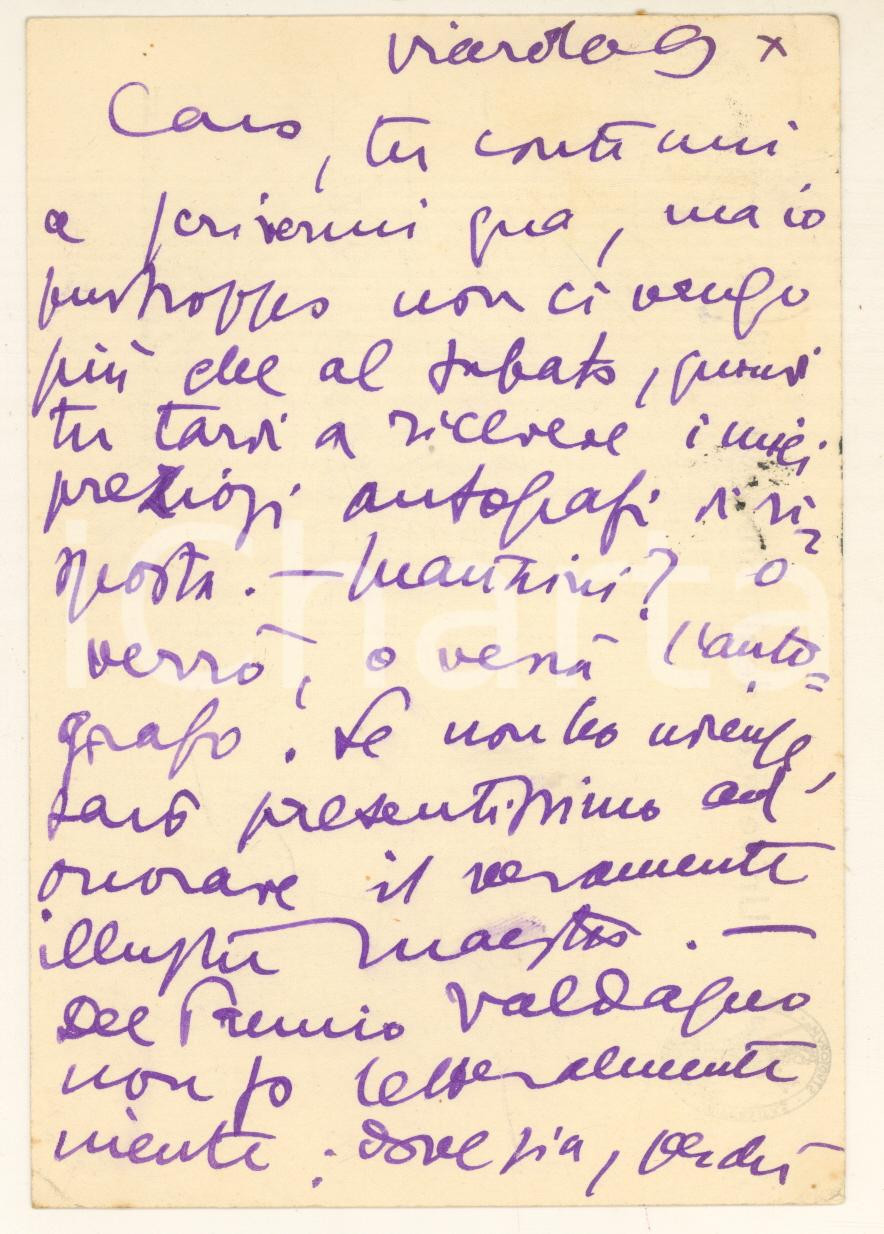 Caro, tu continui
a scrivermi qua, ma io
purtroppo non ci vengo
più che al sabato, quindi
tu tardi a ricevere i miei
preziosi autografi di ri
sposta. — Mantini? o
verrò, o verrà l'auto=
grafo. Se non ho
sarò presentissimo ad
onorare il veramente
illustre Maestro. —
Del Premio Valdagno
non so letteralmente
niente: dove sia,
iCharta